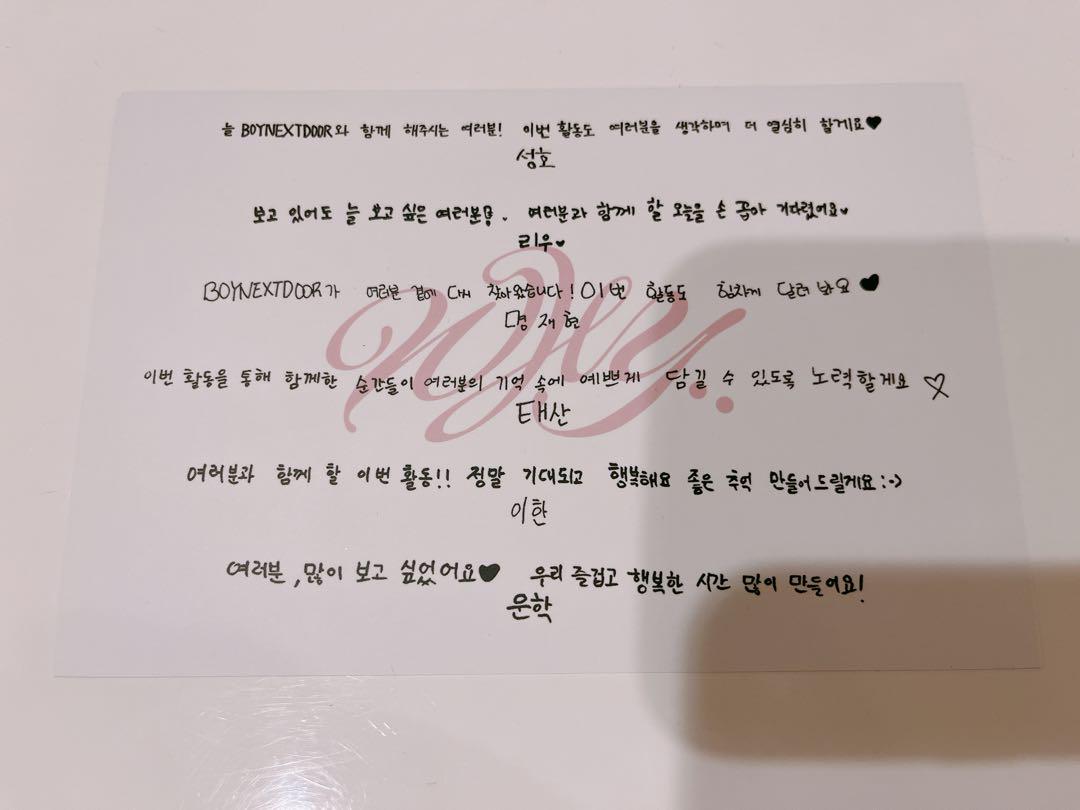 늘 BOYNEXTDOOR와 함께 해주시는 여러분! 이번 활동도 여러분을 생각하며 더 열심히 할게요♥
성호
보고 있어도 늘 보고 싶은 여러분. 여러분과 함께 할 오늘을 손 꼽아 기다렸어요♥
리우♥
BOYNEXTDOOR가 여러분 곁에 다시 찾아왔습니다! 이번 활동도 힘차게 달려 봐요♥
명재현
WHY..
이번 활동을 통해 함께한 순간들이 여러분의 기억 속에 예쁘게 담길 수 있도록 노력할게요♡
태산
여러분과 함께 할 이번 활동!! 정말 기대되고 행복해요 좋은 추억 만들어드릴게요:->
이한
여러분, 많이 보고 싶었어요♥ 우리 즐겁고 행복한 시간 많이 만들어요!
운학